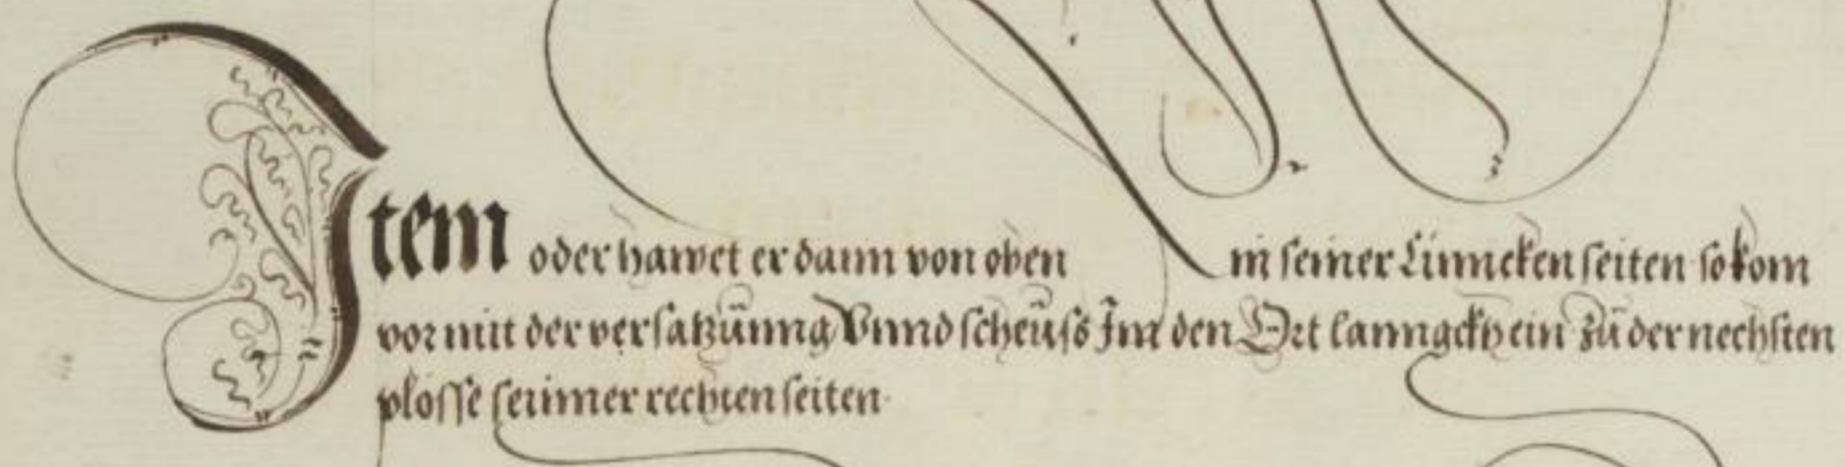 Item oder hawet er dann von oben in seiner Linncken seiten so kom
vor mit der versatzũnng Vnnd scheũss Im den Ort lanngckh ein zũ der nechsten
plösse seinner rechten seiten